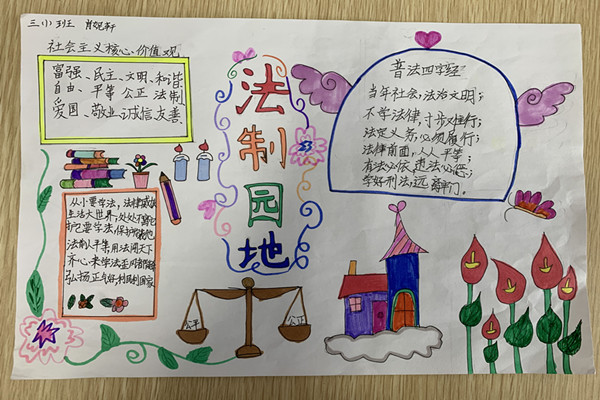 三(1)班
社会主义核心价值观
富强、民主、文明、和谐
自由、平等 公正 法制
爱国、敬业、诚信、友善
法制园地
普法四字经
当年社会,法治文明;
不学法律,寸步难行;
法定义务,必须履行;
法律面前,人人平等;
有法必依,违法必惩;
学好刑法,远离牢门。
从小要学法,法律
生活大世界,处处
护它要学法,保护
法前人平等,用法闯天下
齐心来学法
弘扬正气好,利国利国家
公平
公正